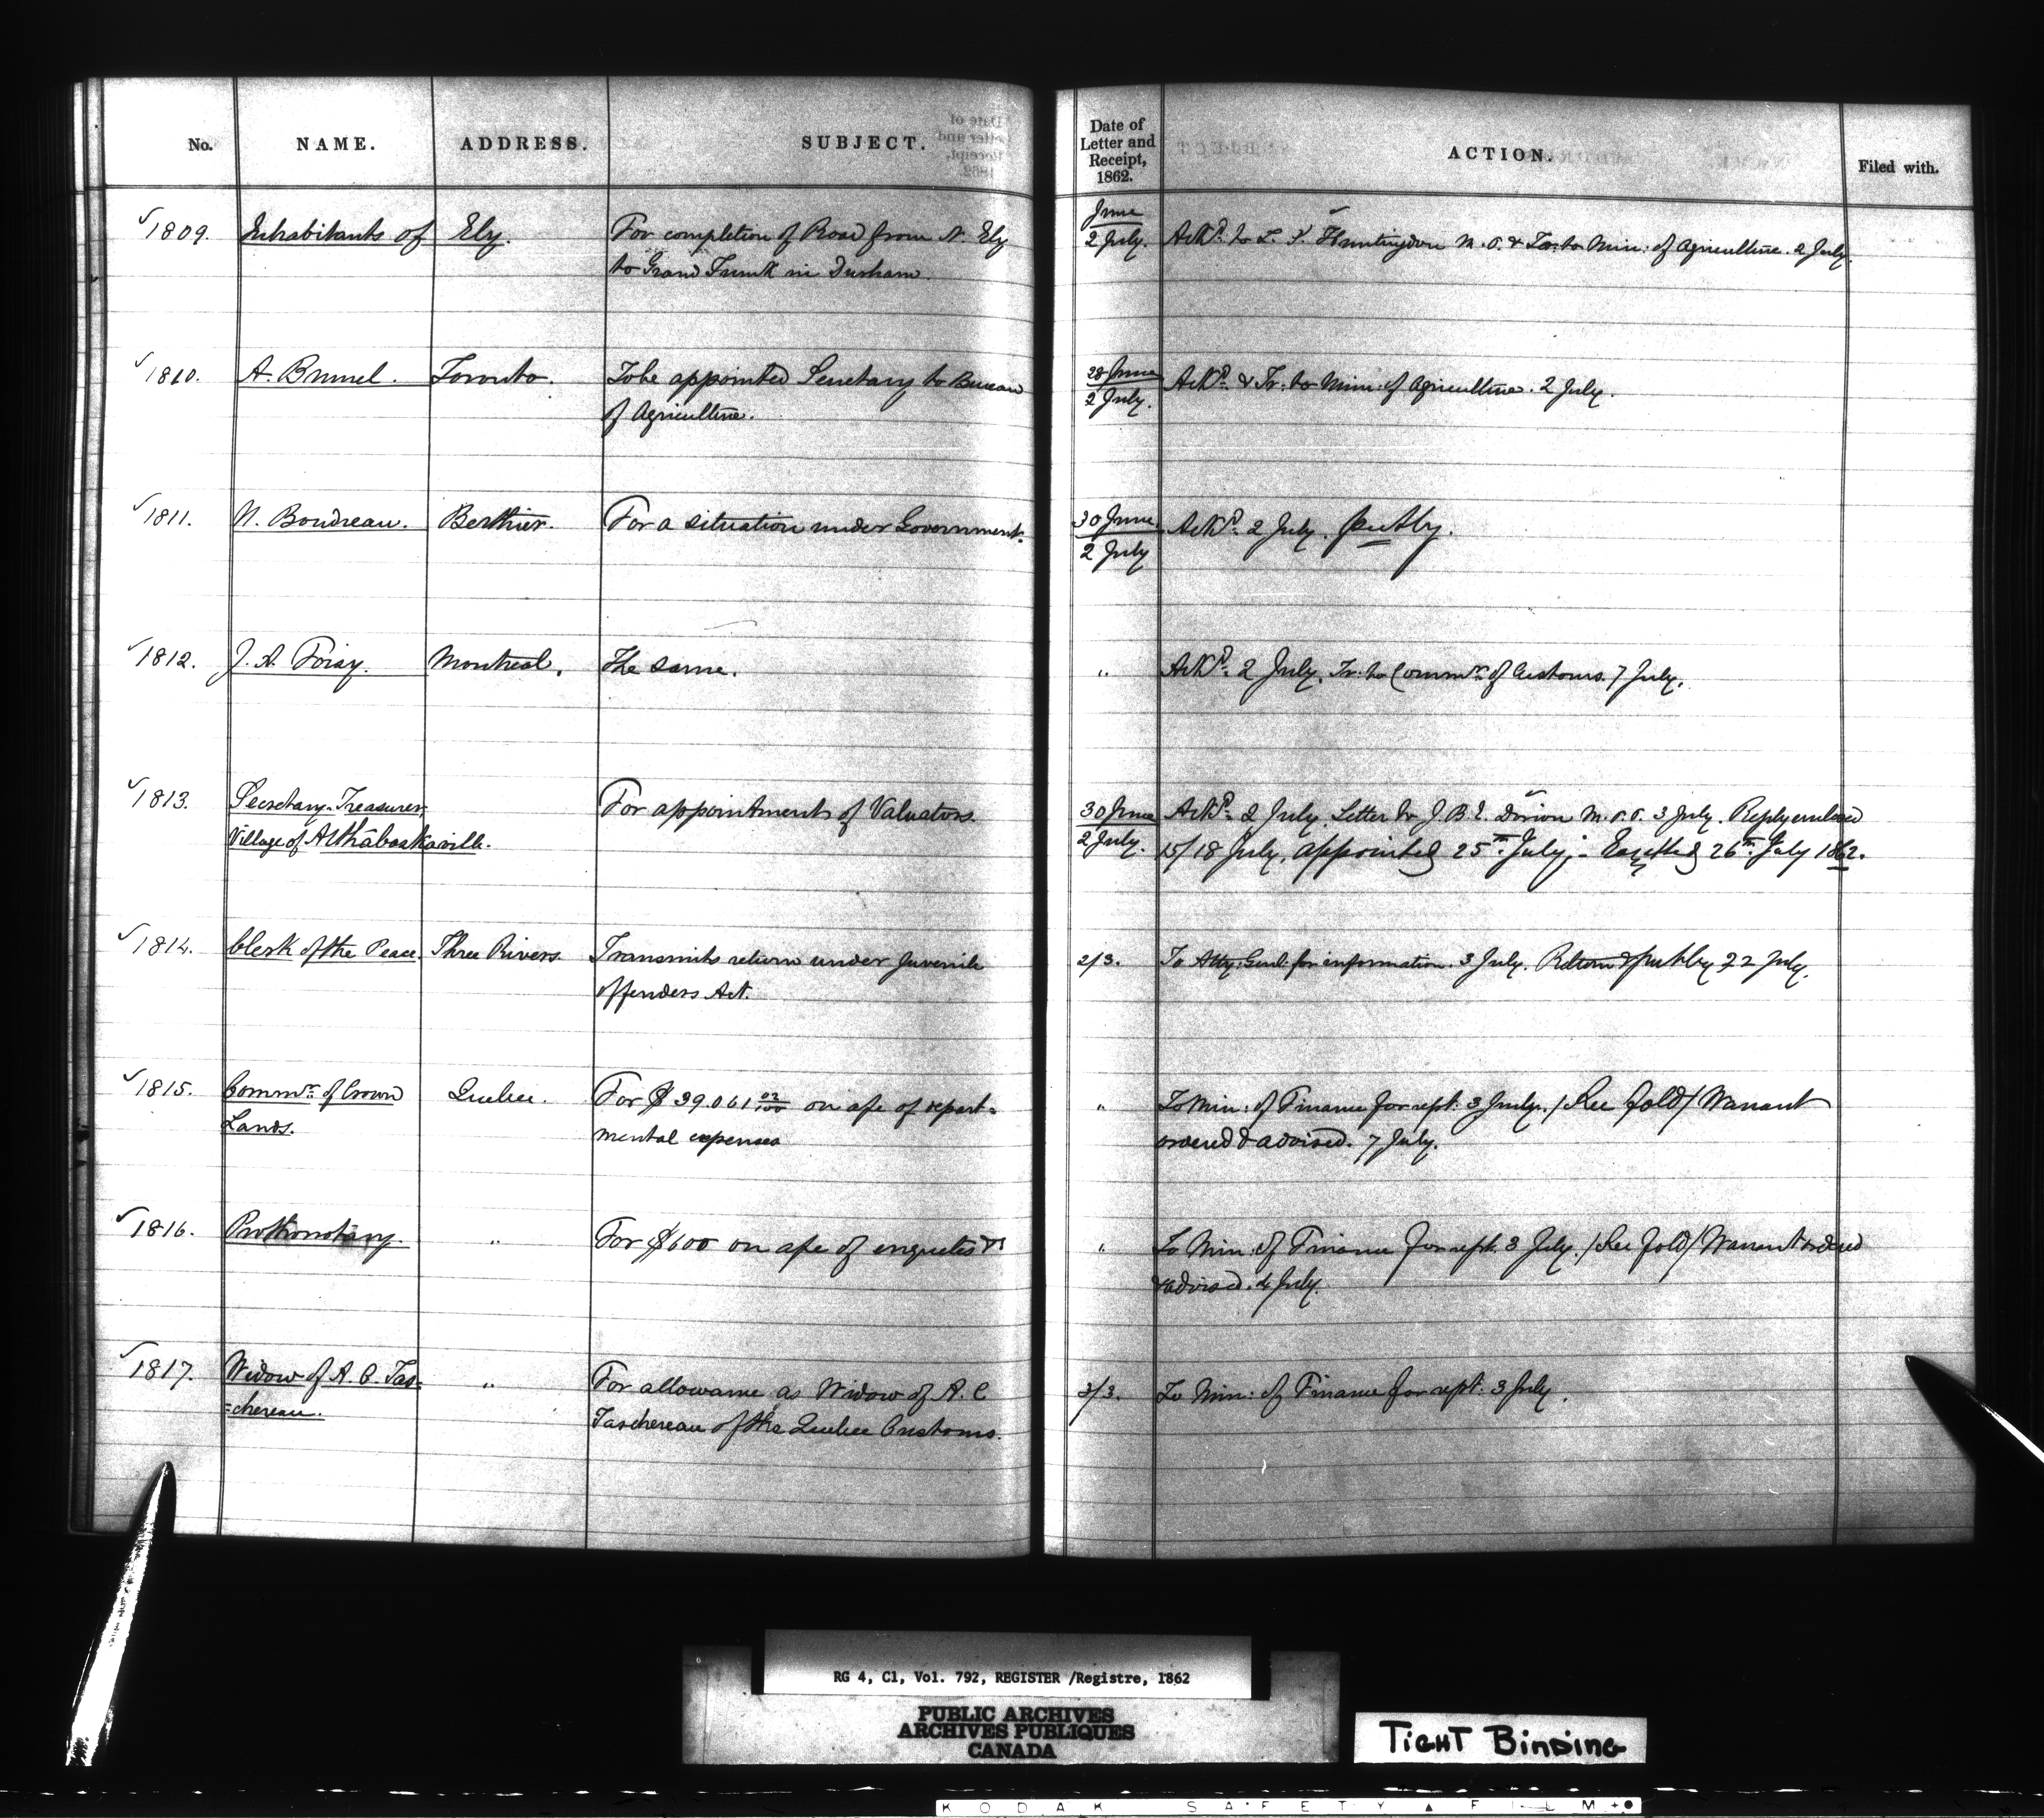 No. NAME. ADDRESS. SUBJECT. Date of Letter and Receipt, 1862. ACTION. Filed with.
1809. Inhabitants of Ely. For completion of Road from N. Ely
to Grand Trunk in Durham.
June
2 July. Ackd. to L. S. Huntingdon M. P. P. & Tr. to Min: of Agriculture. 2 July.
1810. A. Brunel. Toronto. To be appointed Secretary to Bureau
of Agriculture.
28 June
2 July. Ackd. & Tr: to Min: of Agriculture. 2 July.
1811. N. Boudreau. Berthier. For a situation under Government.
30 June
2 July Ackd. 2 July.
1812. J. A. Foisy. Montreal. The same.
" Ackd. 2 July. Tr: to Commr. of Customs. 7 July.
1813. Secretary-Treasurer,
Village of Althabaskaville.
For appointment of Valuators.
30 June
2 July. Ackd. 2 July. Letter to J. B. E. Dorion M. P. P. 3 July. Reply enclosed
15/18 July. appointed 25th July. - Gazetted 26th July 1862.
1814. Clerk of the Peace. Three Rivers. Transmits return under Juvenile
offenders Act.
2/3. To Atty: Genl: for information. 3 July. Return & 22 July.
1815. Commr. of Crown
Lands.
Quebec. For $39.061 02/100 on a/c of depart=
mental expenses
" To Min: of Finance for rept. 3 July. / See fold / Warrant
ordered & advised. 7 July.
1816. Prothonotary. " For $600 on a/c of enquetes &c
" To Min: of Finance for rept. 3 July. / See fold / Warrant ordered
& advised. 4 July.
1817. Widow of A. C. Tas=
=chereau.
" For allowance as Widow of A. C
Taschereau of the Quebec Customs.
3/3. To Min: of Finance for rept: 3 July.
RG 4, C1, Vol. 792, REGISTER /Registre, 1862
PUBLIC ARCHIVES
ARCHIVES PUBLIQUES
CANADA
TIGHT BINDING
KODAK SAFETY ▲ FILM